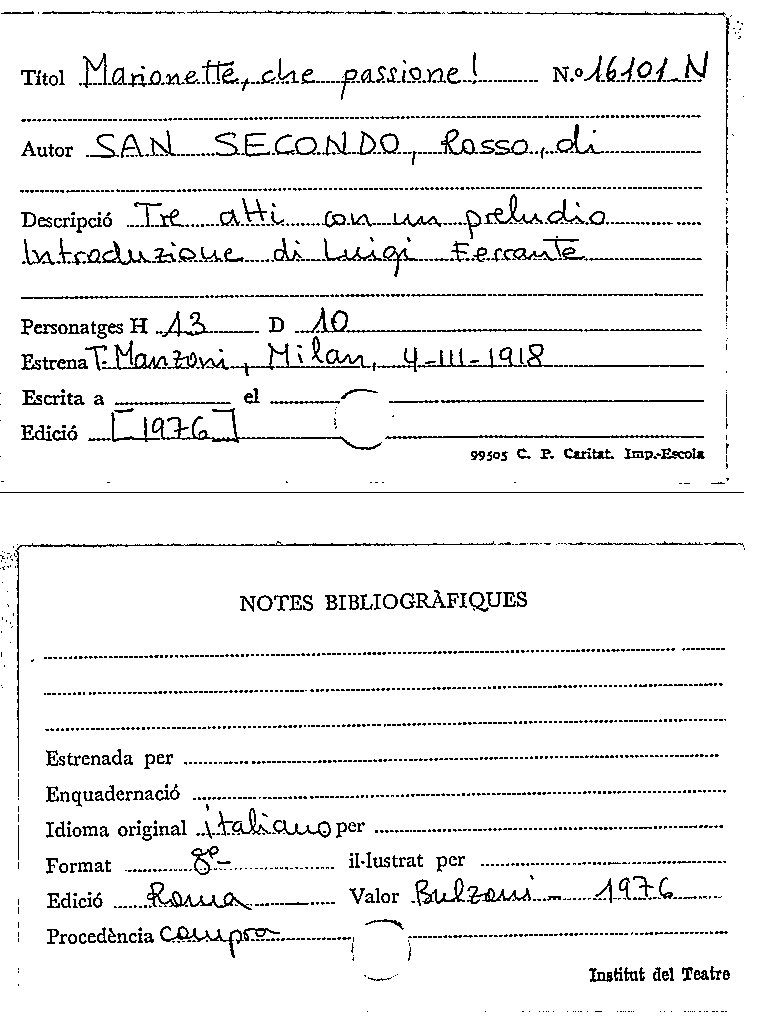 Títol Marionette, che passione! N.º 16101 N
Autor SAN SECONDO, Rosso, di
Descripció Tre atti con un preludio
Introduzione di Luigi Ferrante
Personatges H 13 D 10
Estrena T. Manzoni, Milan, 4-III-1918
Escrita a el
Edició [1976]
99505 C. P. Caritat. Imp.-Escola
NOTES BIBLIOGRÀFIQUES
Estrenada per
Enquadernació
Idioma original italiano per
Format 8º- il·lustrat per
Edició Roma Valor Bulzoni - 1976
Procedència compra
Institut del Teatre